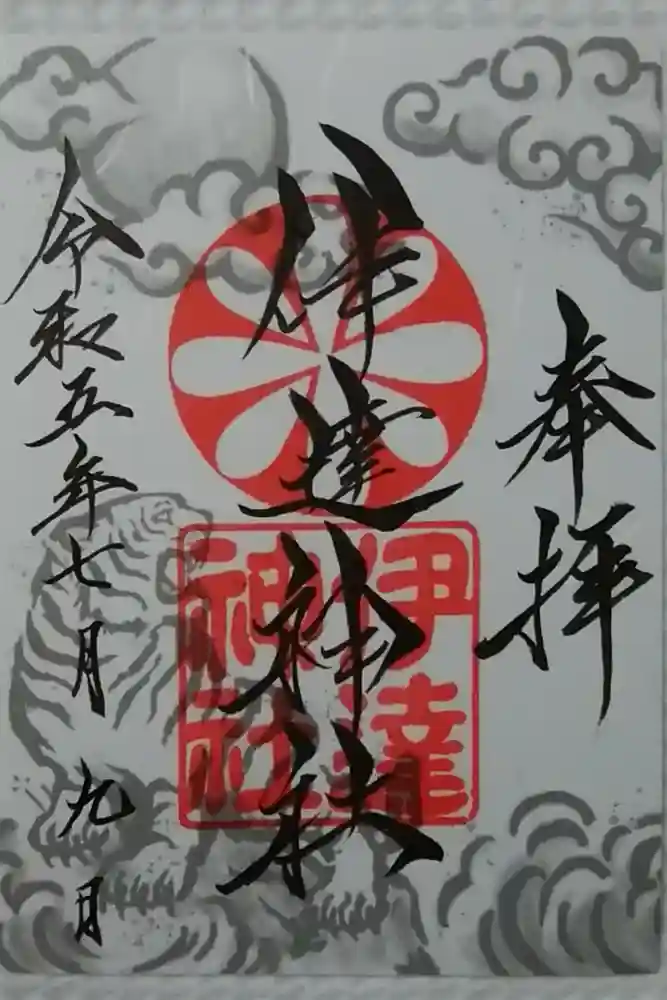 奉拝
伊達神社
伊達
神社
令和五年七月九日